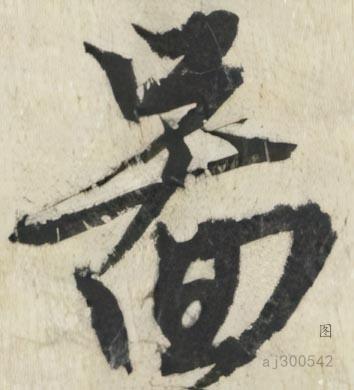 啚
图
aj300542